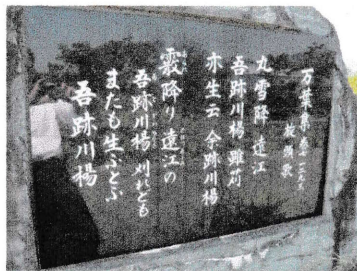 万葉集巻七 一二九三
旋頭歌
丸雪降 遠江
吾跡川楊 雖苅
亦生云 余跡川楊
霰降り 遠江の
吾跡川楊 刈れども
またも生ふとふ
吾跡川楊